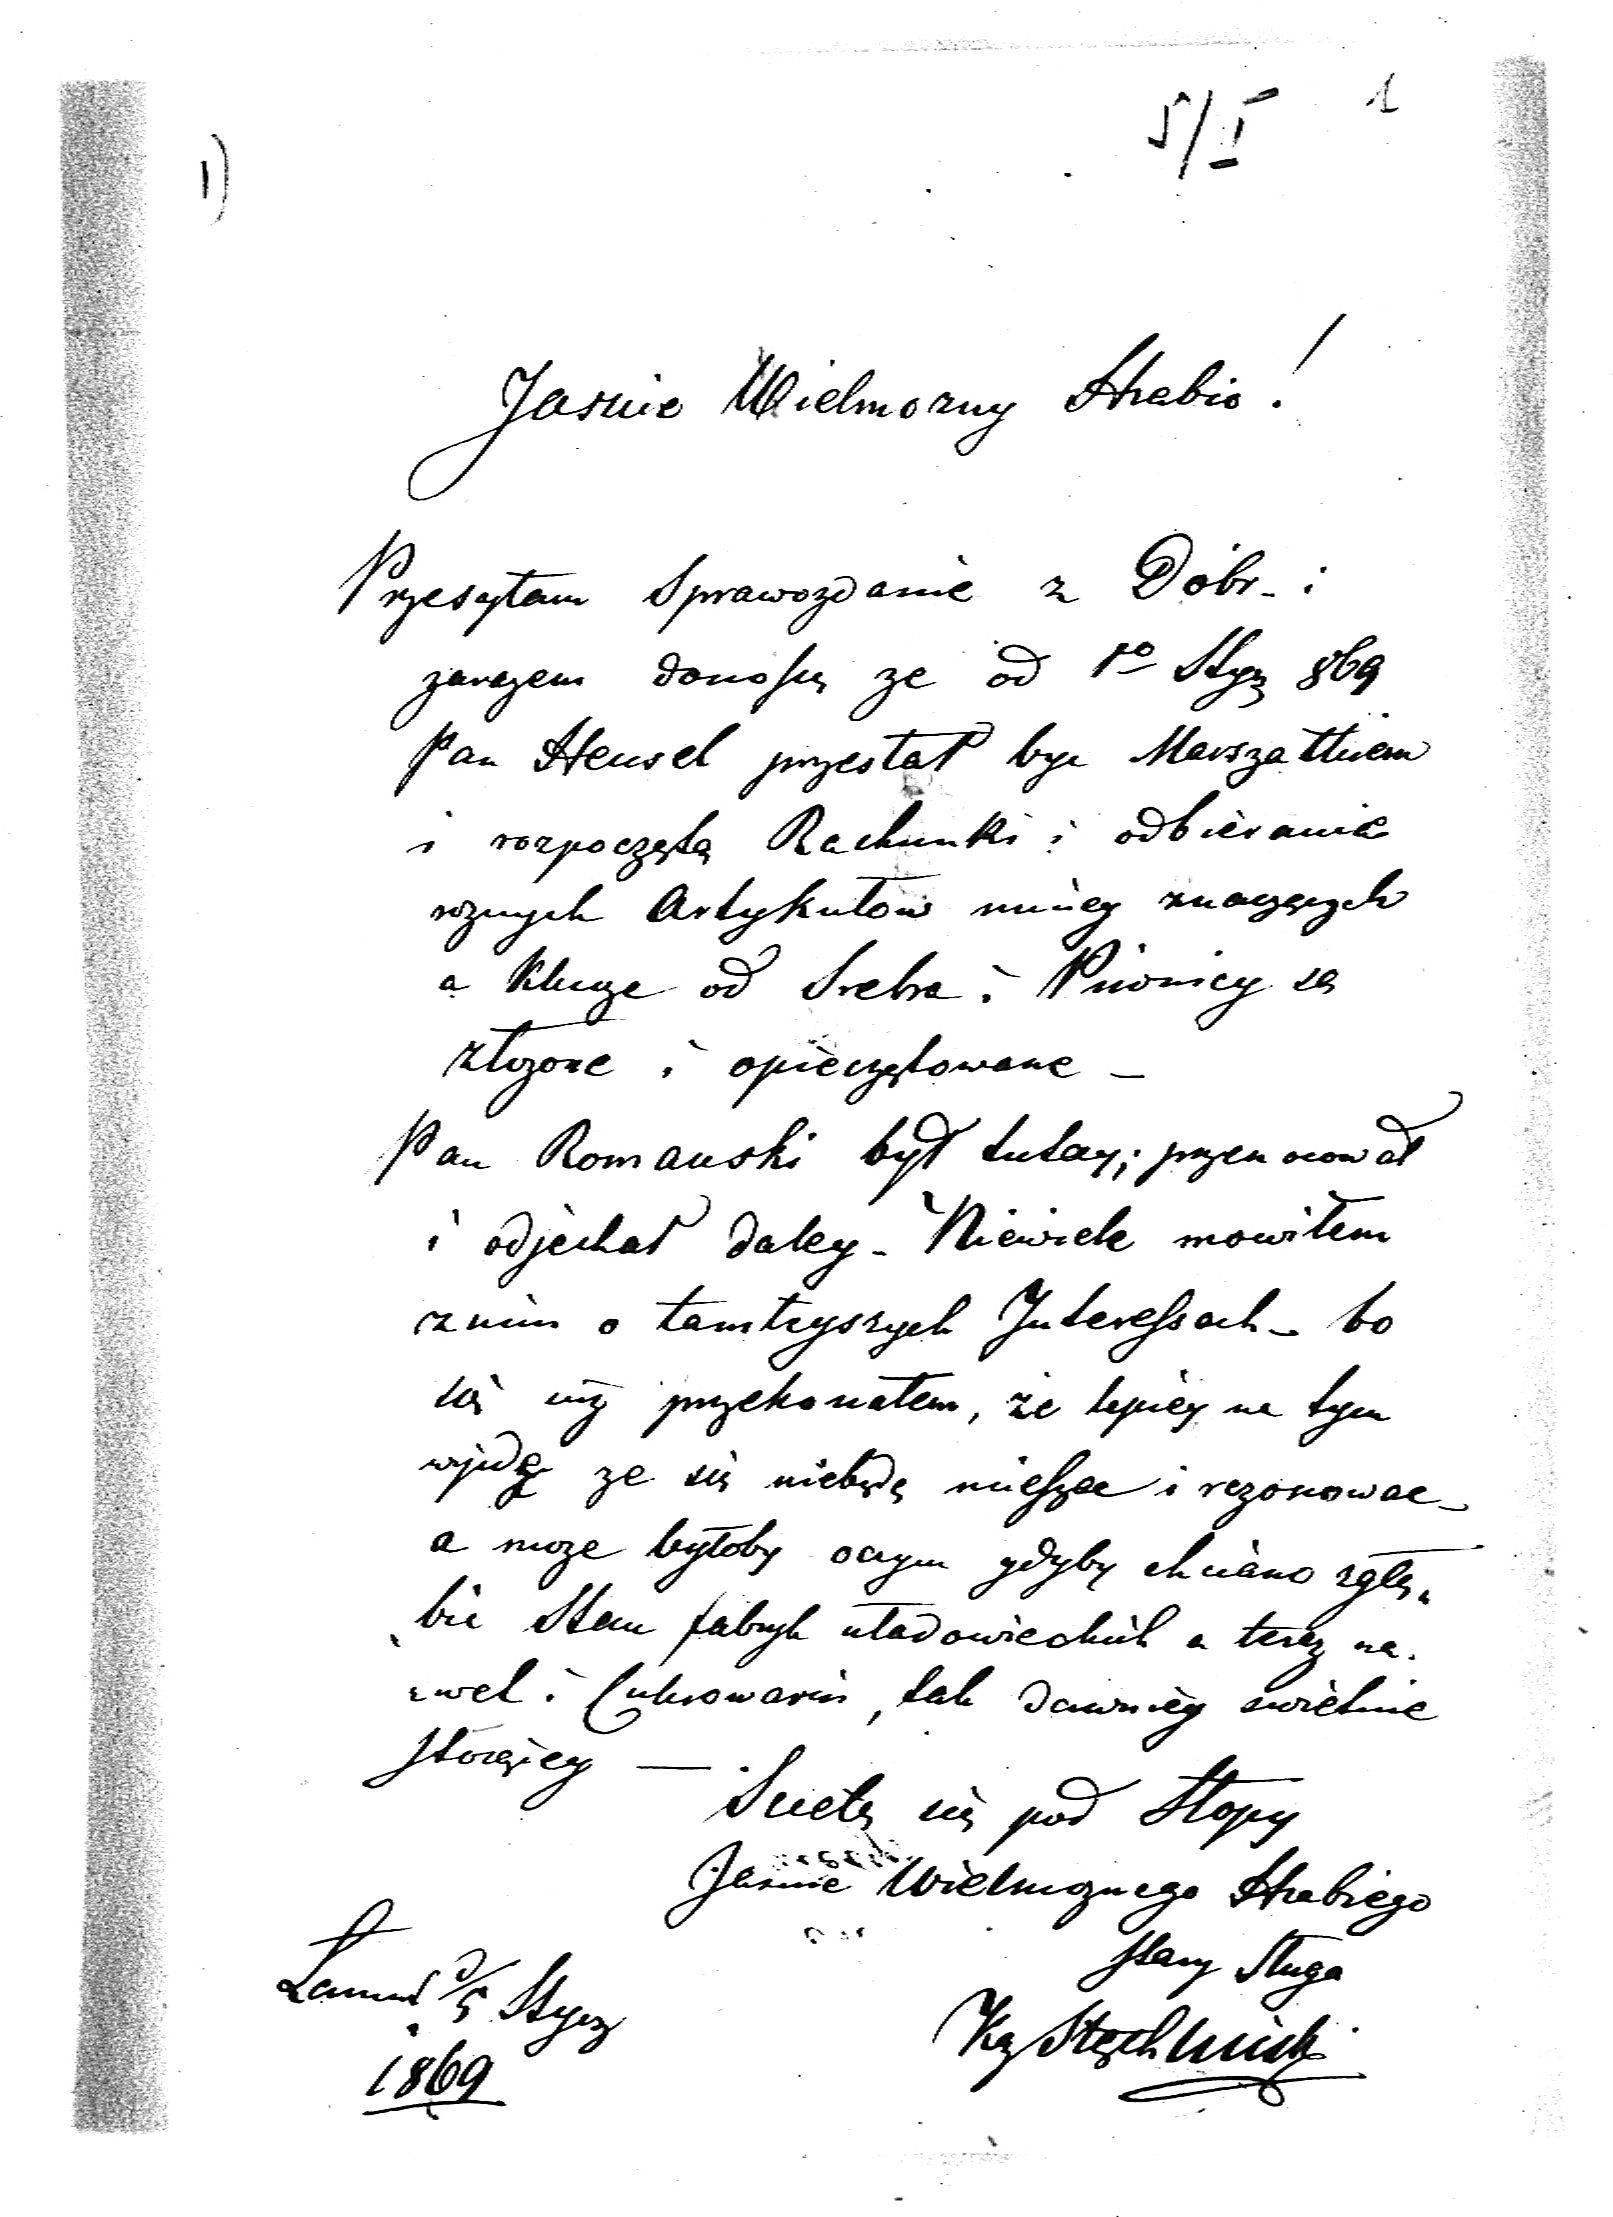 5/I 1
1)
Jasnie Wielmozny Hrabio!
Przesyłam Sprawozdanie z Dóbr - i
zarazem donoszę ze od 1º Stycz 869
Pan Hensel przestał byc Marszałkiem
i rozpoczęła Rachunki i odbieranie
roznych Artykułow mniey znaczących
a Klucze od Srebra i Piwnicy są
złozone i opieczętowane -
Pan Romanski był tutay; przenocował
i odjechał daley - Niewiele mowiłem
z nim o tamteyszych Interessach - bo
się iuz przekonałem, że lepiey na tym
wyidę ze się niebędę mieszac i rezonowac -
a moze byłoby oczym gdyby chciano zgłę„
bic Stan fabryk uładowieckich a teraz na„
„wet i Cukrowarni, tak dawniey swietnie
stoiącey —
Scielę się pod Stopy
Jasnie Wielmoznego Hrabiego
stary Sługa
Łancut d/5 Stycz
1869